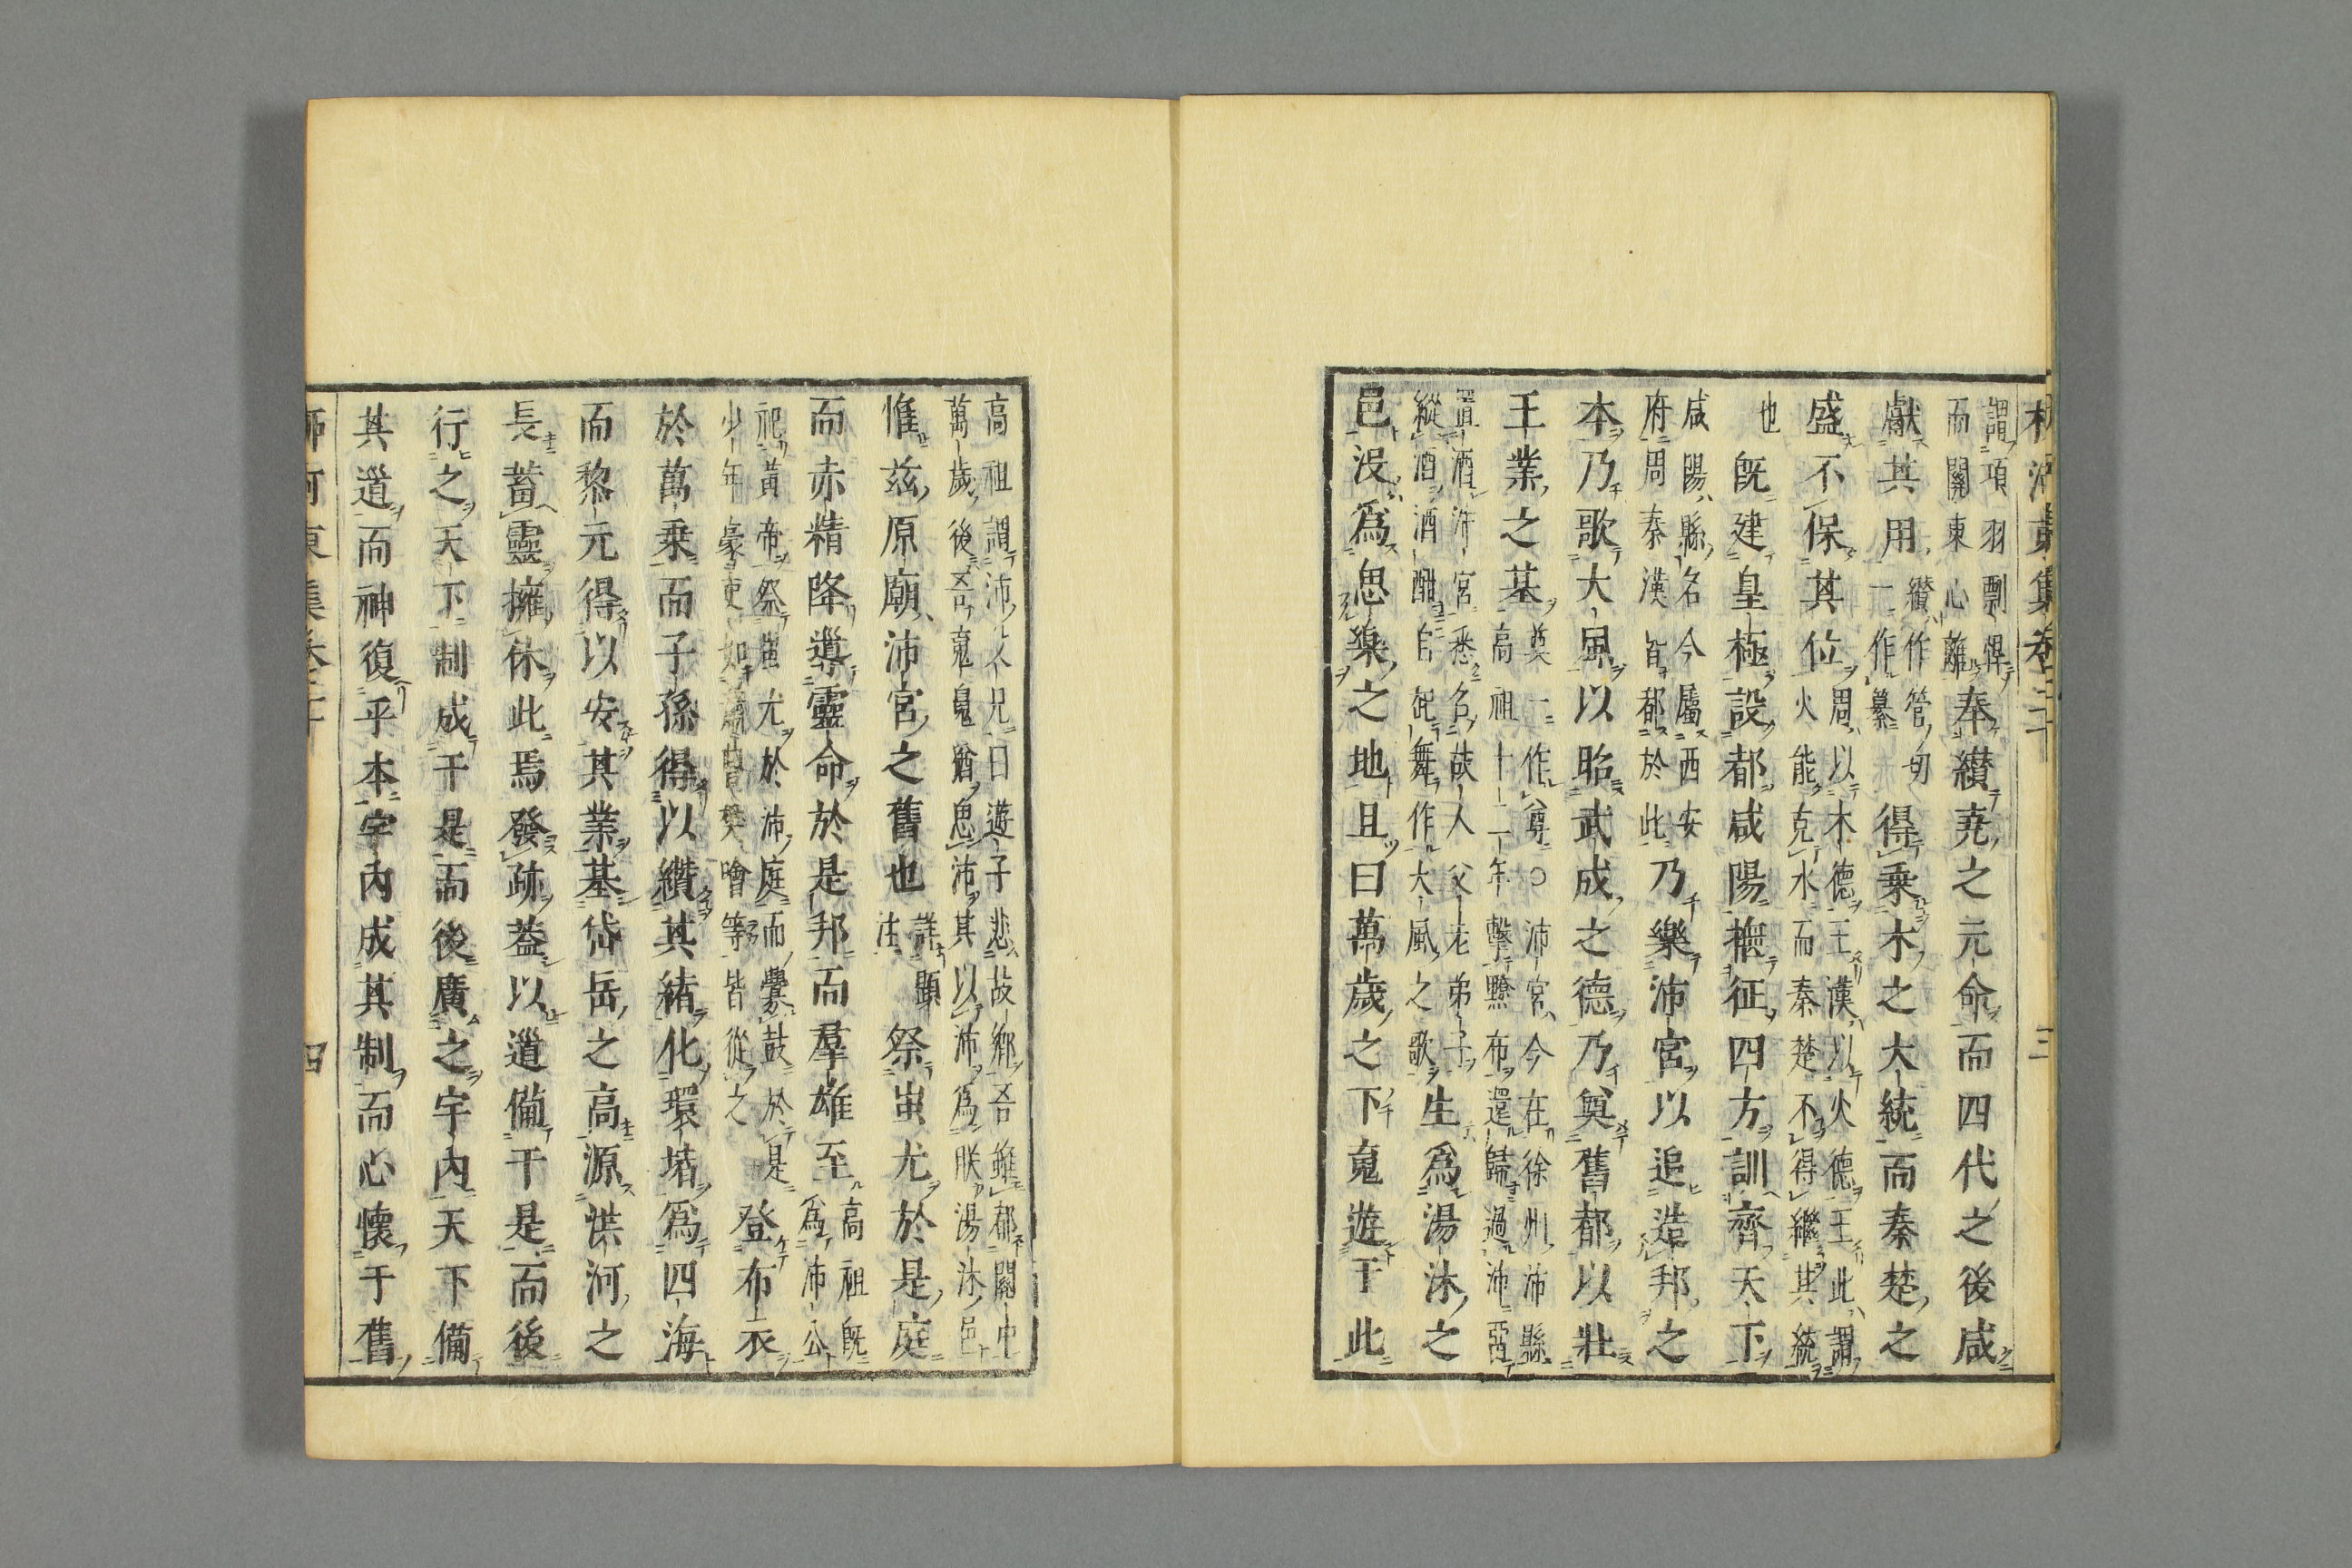 柳河東集卷二十　三
謂項羽剽悍
而關東心離
奉纘堯之元命而四代之後咸
獻其用
纘作管切
一作纂
得乗木之大統而秦楚之
盛不保其位
周以木德王漢以火德王此謂
火能克水而秦楚不得繼其統
也
既建皇極設都咸陽撫征四方訓齊天下
咸陽縣名今屬西安
府周秦漢皆都於此
乃樂沛宮以追造邦之
本乃歌大風以昭武成之德乃奠舊都以壯
王業之基
奠一作尊○沛宮今在徐州沛縣
高祖十二年擊黥布還歸過沛
置酒沛宮悉召故人父老弟子
縱酒酒酣自起舞作大風之歌
生爲湯沐之
邑没爲思樂之地且曰萬歲之下䰟遊于此
高祖謂沛父兄曰遊子悲故鄉吾雖都關中
萬歲後吾䰟䰟猶思沛其以沛爲朕湯沐邑
惟兹原廟沛宮之舊也
詳題
注
祭蚩尤於是庭
而赤精降導靈命於是邦而羣雄至
高祖既
爲沛公
祀黃帝祭蚩尤於沛庭而釁鼓於是
少年豪吏如蕭曹樊噲等皆從之
登布衣
於萬乗而子孫得以纘其緒化環堵爲四海
而黎元得以安其業基岱岳之高源洪河之
長蓄靈擁休此焉發跡葢以道備于是而後
行之天下制成于是而後廣之宇内天下備
其道而神復乎本宇内成其制而心懷于舊
柳河東集卷二十　四